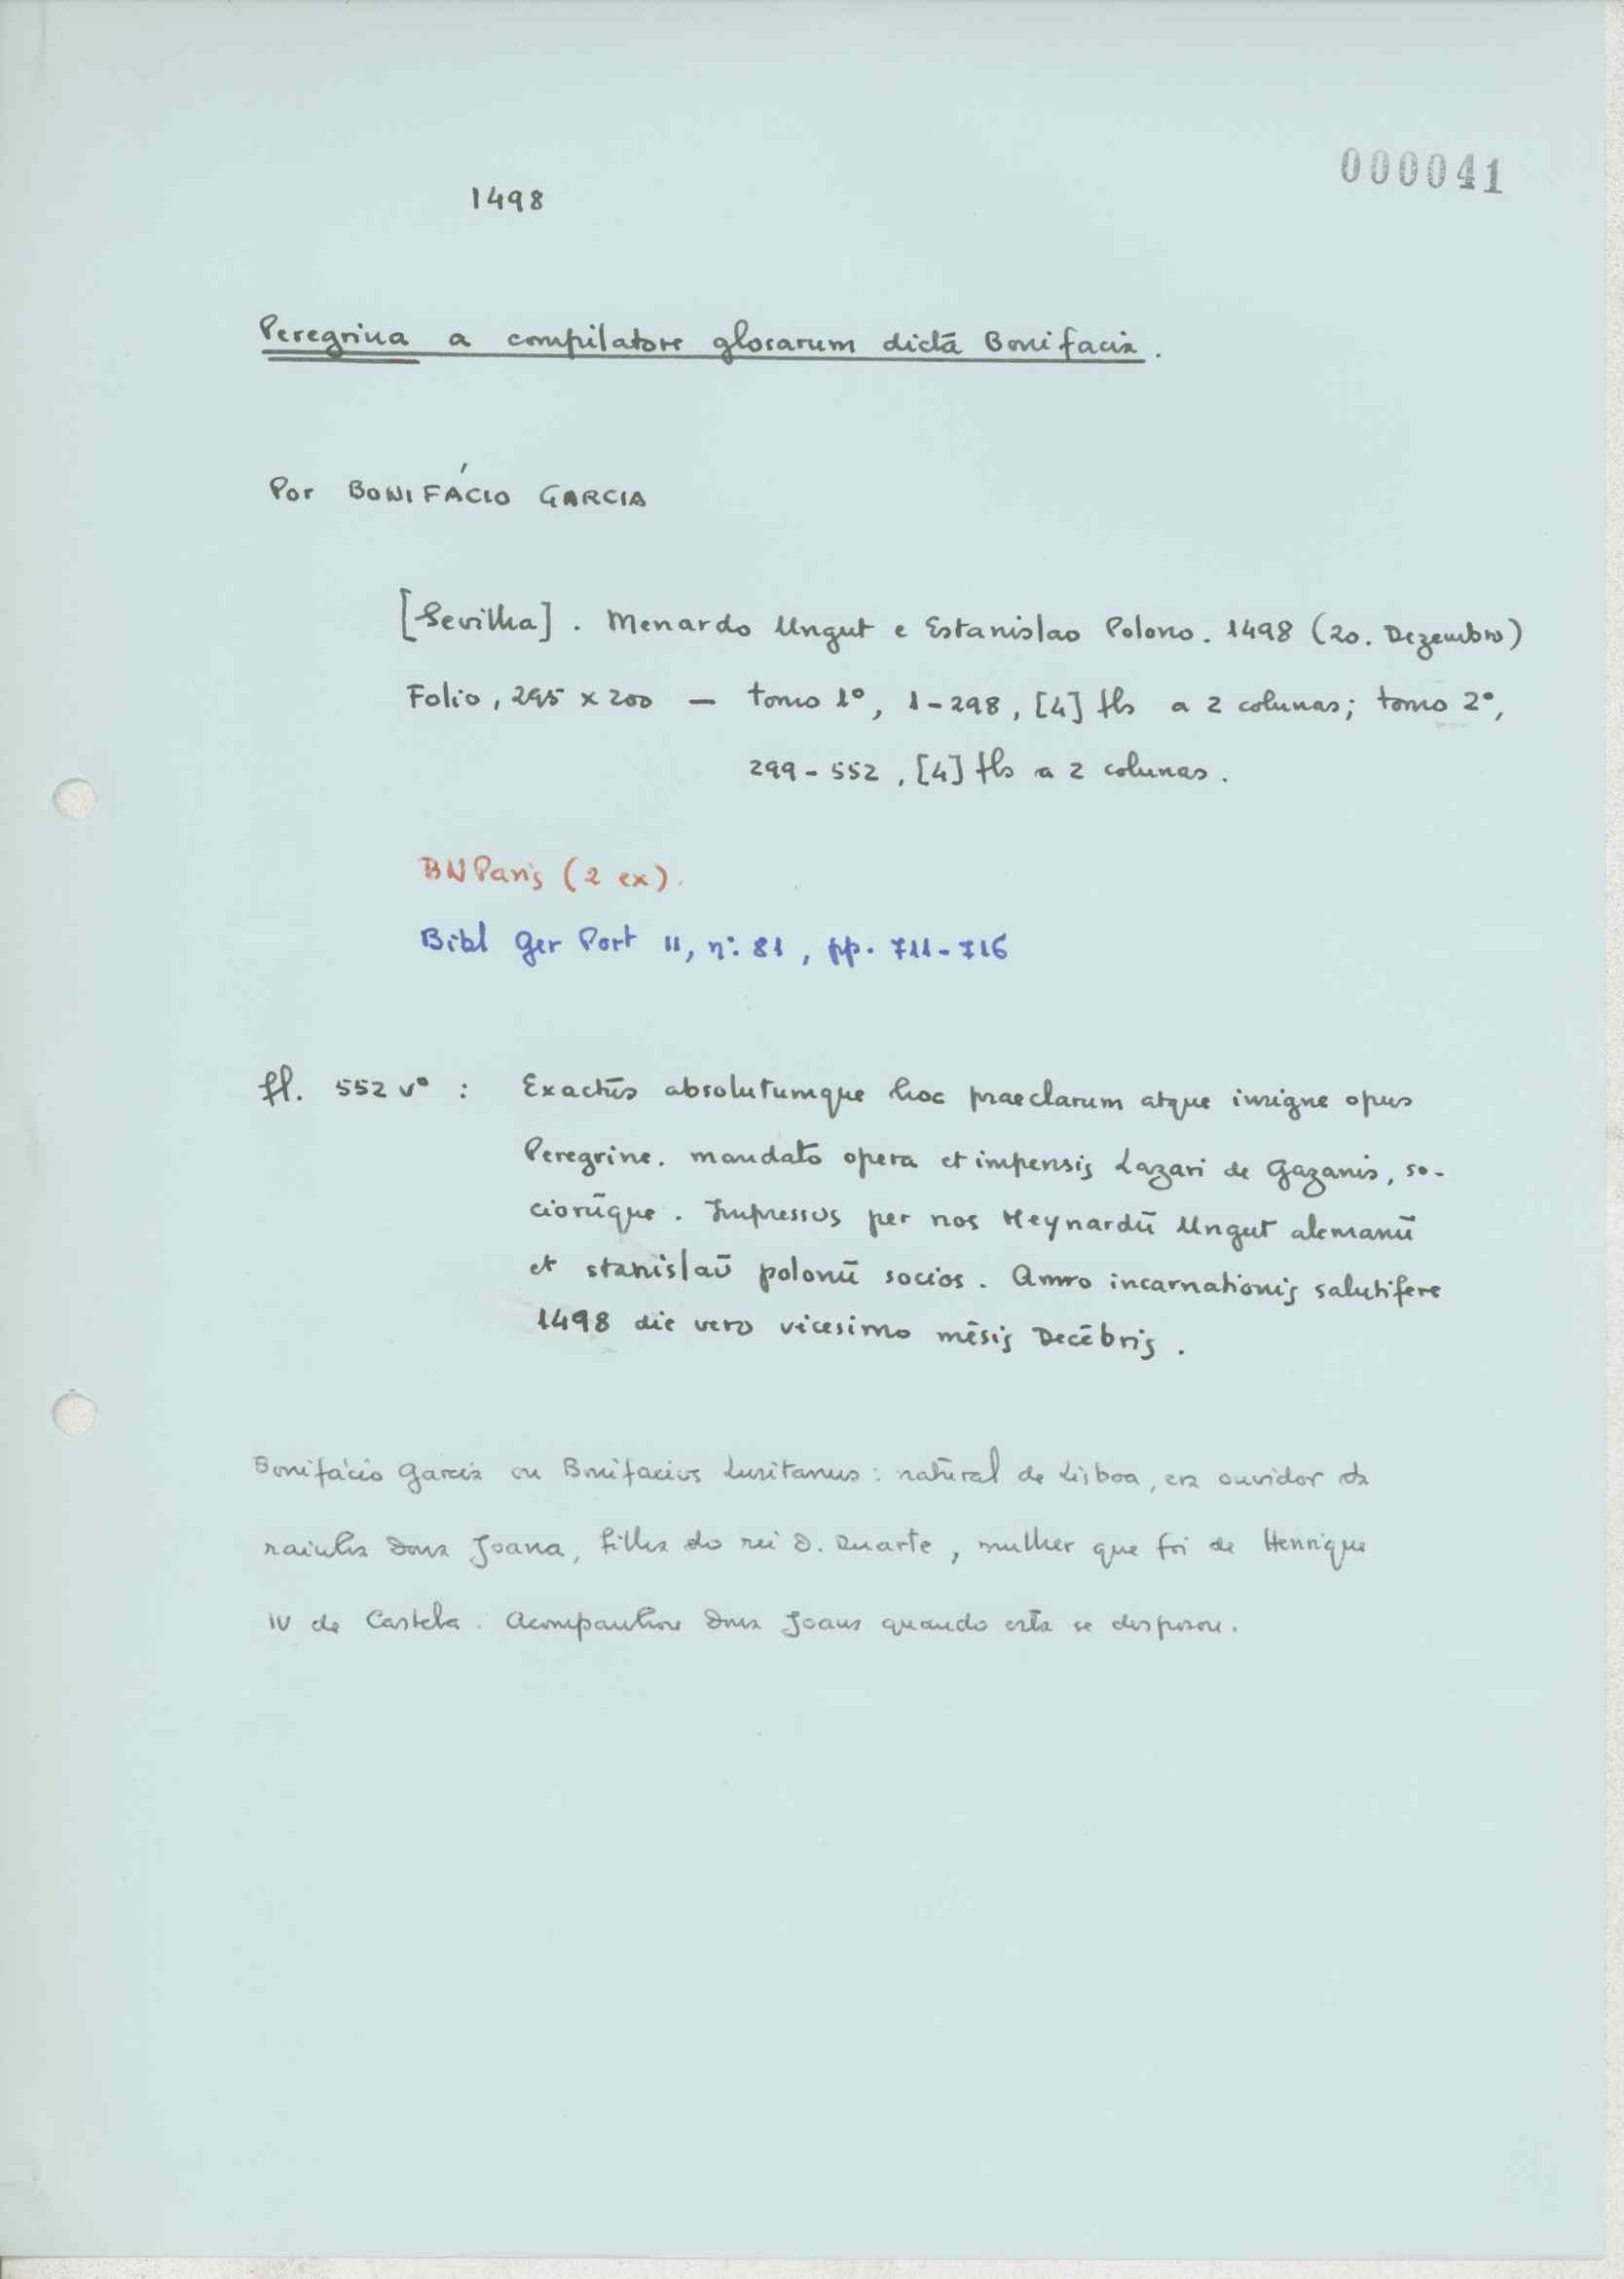 000041
1498
Peregrina a compilatore glosarum dictā Bonifacia.
Por BONIFÁCIO GARCIA
[Sevilha]. Menardo Ungut e Estanislao Polono. 1498 (20. Dezembro)
Folio, 295 x 200 — tomo 1º, 1-298, [4] fls a 2 colunas; tomo 2º,
299-552, [4] fls a 2 colunas.
BN Paris (2 ex).
Bibl Ger Port II, nº: 81, pp. 711-716
fl. 552 vº : Exactūs absolutumque hoc praeclarum atque insigne opus
Peregrine. mandato opera et impensis Lazari de Gazanis, so-
ciorūque. Impressus per nos Meynardū Ungut alemanū
et stanislaū polonū socios. Anno incarnationis salutifere
1498 die vero vicesimo mēsis Decēbris.
Bonifácio Garcia ou Bonifacius Lusitanus: natural de Lisboa, era ouvidor da
rainha Dona Joana, filha do rei D. Duarte, mulher que foi de Henrique
IV de Castela. Acompanhou Dona Joana quando esta se desposou.